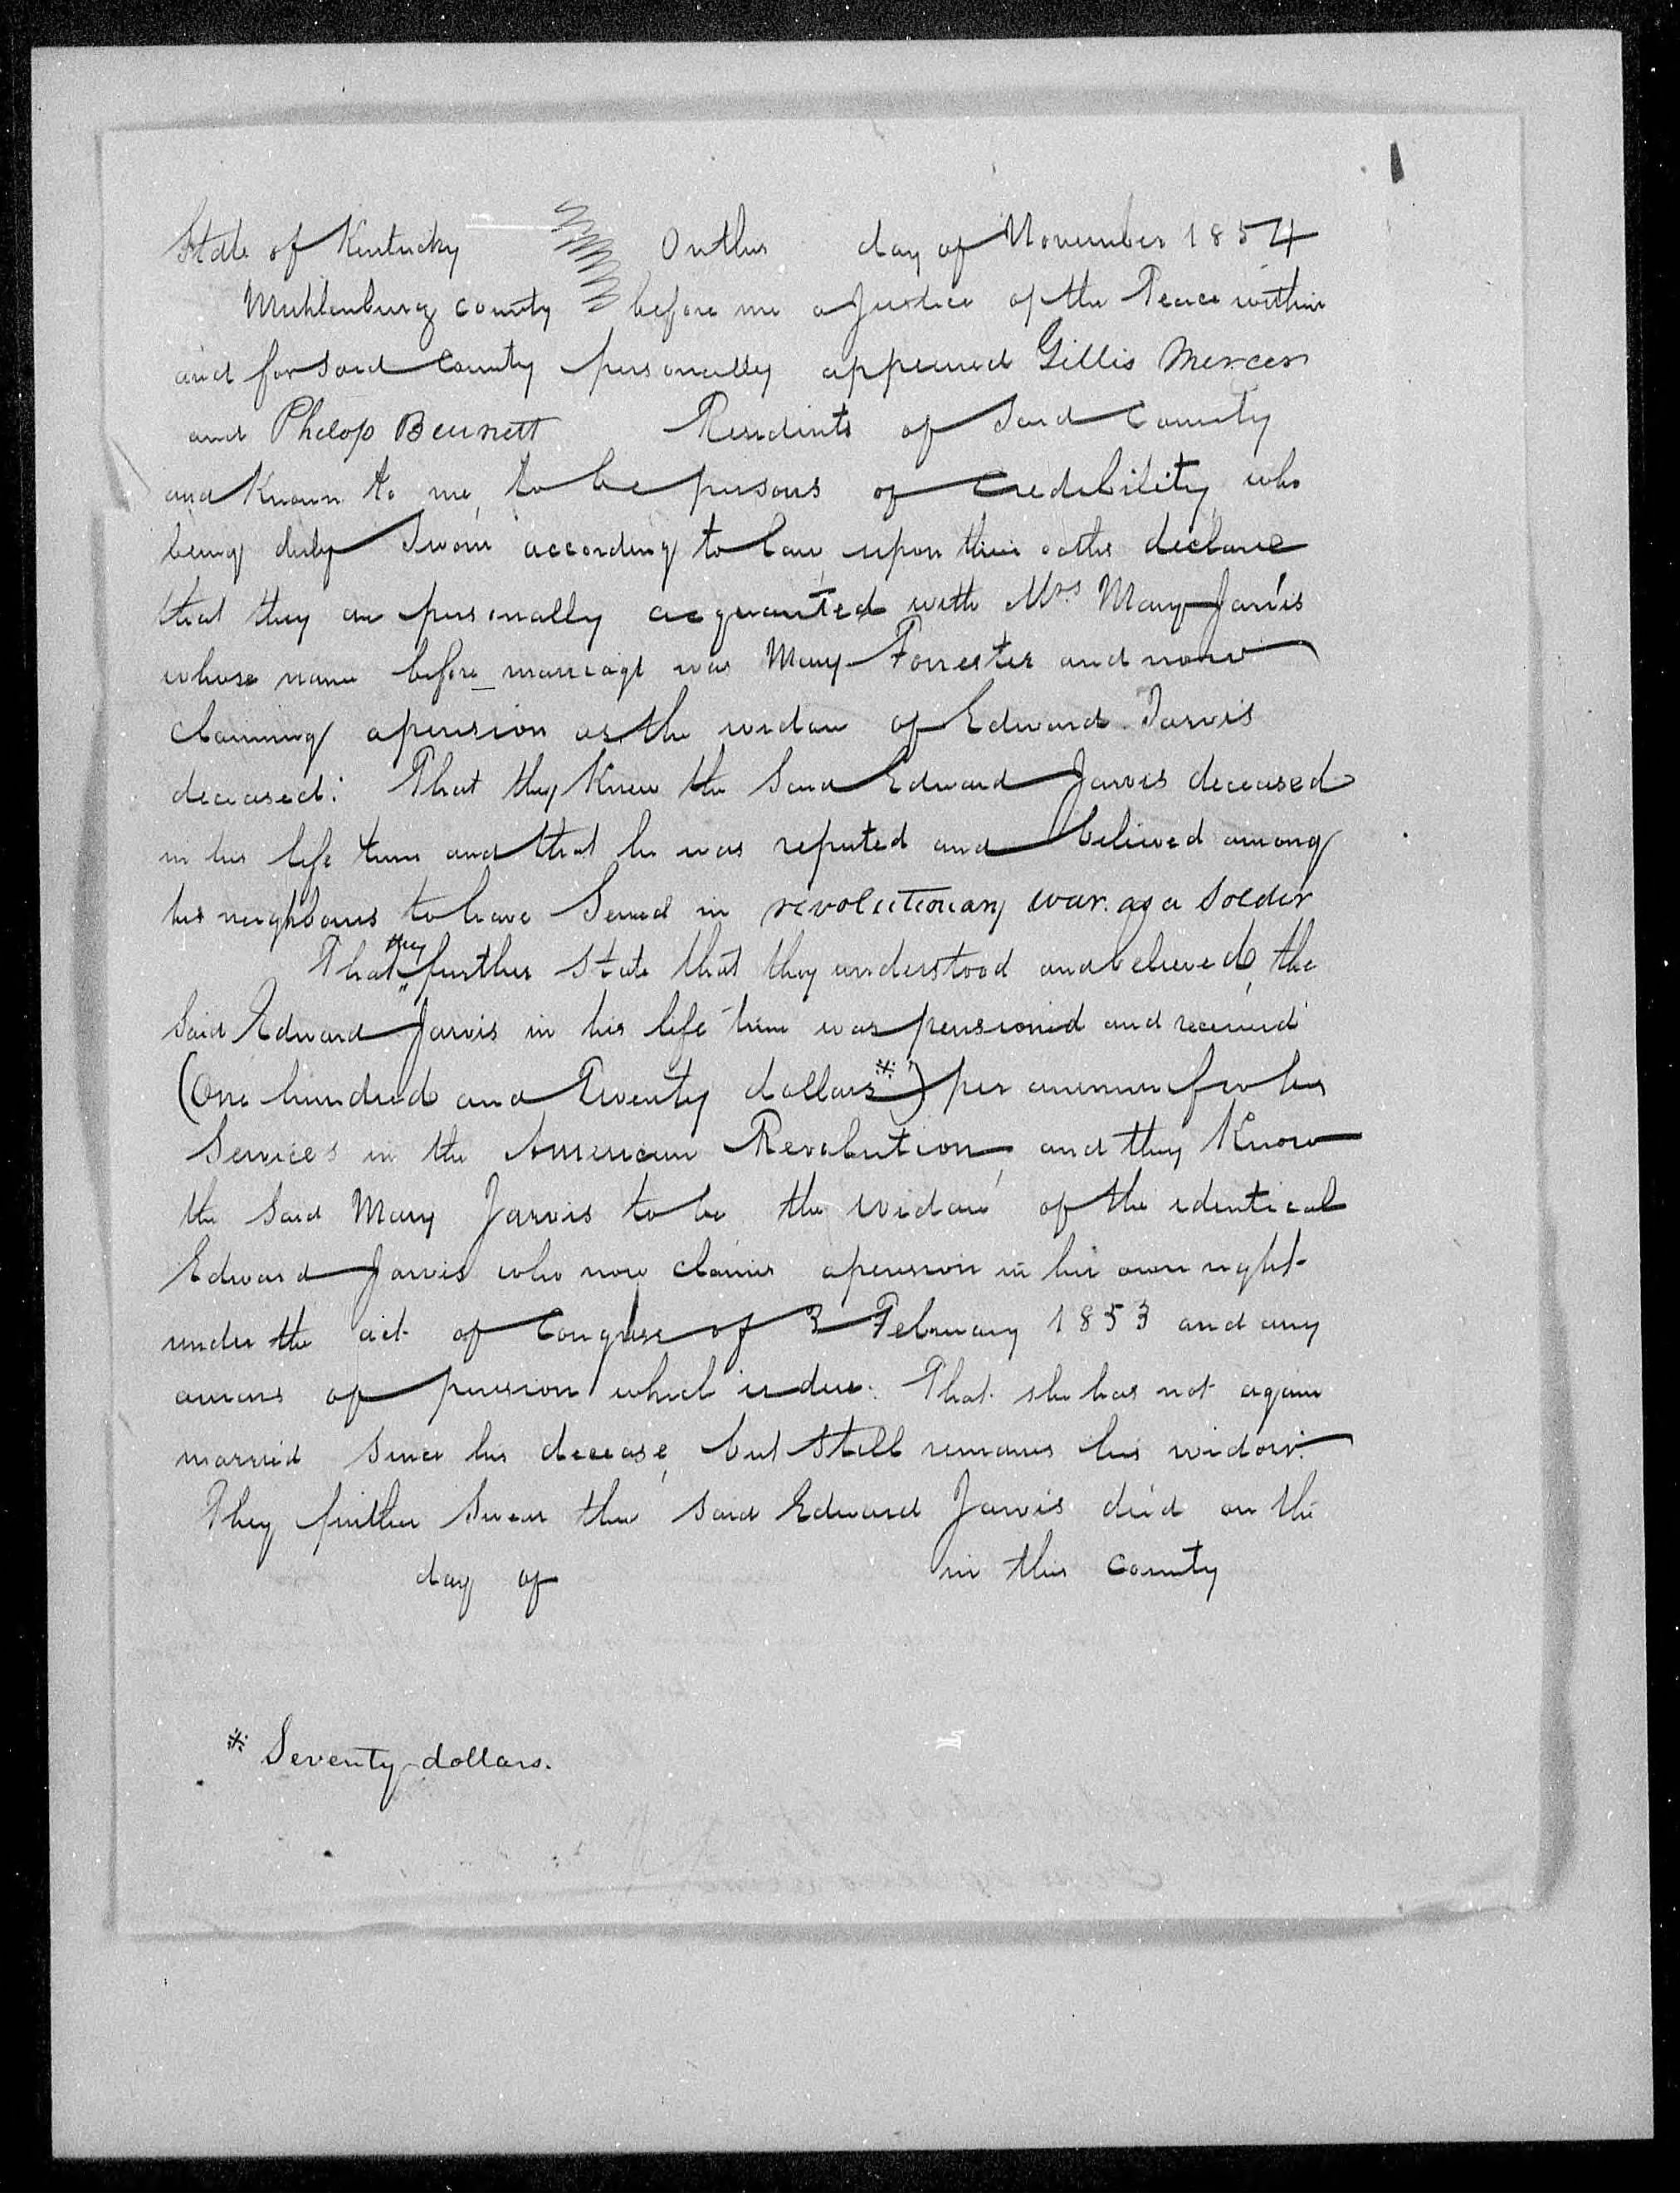 State of Kentucky On this day of November 1854
Muhlenburg county before me a Justice of the Peace within
and for said County personally appeared Gillis Mercer
and Philop Bennett Residents of Said County
and Known to me, to be persons of Credibility, who
being duly Sworn according to law, upon their oaths declare
that they are personally acquanted with Mrs Mary Jarvis
whose name before marriage was Mary Forrester and now
claiming a pension as the widow of Edward Jarvis
deceased: That they Knew the Said Edward Jarvis deceased
in his life time and that he was reputed and believed among
his neighbours to have Served in revolutionary war. as a Solder
That they further State that they understood and believed, the
Said Edward Jarvis in his life time was pensioned and received
(One hundred and Twenty dollars*) per annum for his
Services in the American Revolution, and they Know
the Said Mary Jarvis to be the widow of the identical
Edward Jarvis who now claims a pension in her own right
under the act of Congress of 3 February 1853 and any
arrears of pension which is due. That she has not again
married Since his decease, but Still remains his widow.
They further Swear the said Edward Jarvis died on the
day of in this County
* Seventy dollars.